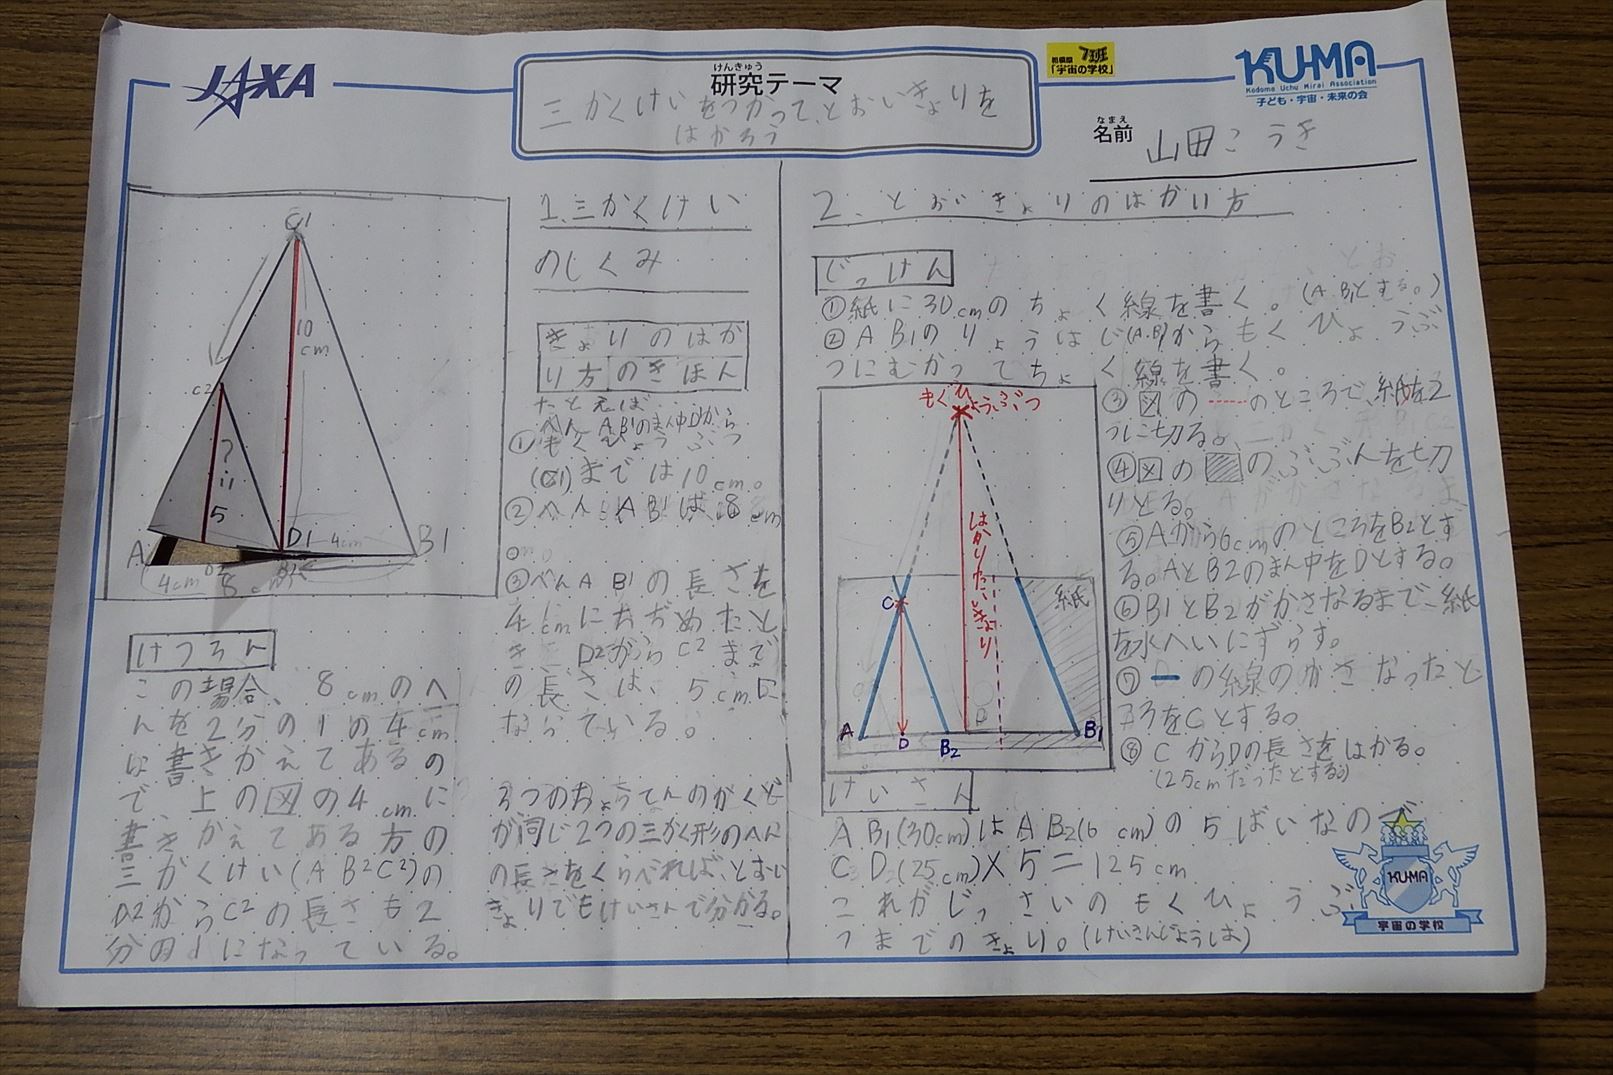 JAXA
けんきゅう
研究テーマ
三かくけいをつかって、とおいきょりを
はかろう
相模原 7班
「宇宙の学校」
KU-MA
Kodomo Uchu Mirai Association
子ども・宇宙・未来の会
なまえ
名前
山田こうき
C1
10
cm
C2
?
5
A
D1
4cm
B1
4cm
D2
8cm
けつろん
この場合、8cmのへ
んを2分の1の4cm
に書きかえてあるの
で、上の図の4cmに
書きかえてある方の
三かくけい(AB2C2)の
D2からC2の長さも2
分の1になっている。
1.三かくけい
のしくみ
きょりのはか
り方のきほん
たとえば
①へんAB1のまん中Dから
もくひょうぶつ
(C1)までは10cm。
②へんAB1は、8cm
。
③へんAB1の長さを
4cmにちぢめたと
き、D2からC2まで
の長さは、5cmに
なっている。
3つのちょうてんのかくど
が同じ2つの三かく形のへん
の長さをくらべれば、とおい
きょりでもけいさんで分かる。
2.とおいきょりのはかり方
じっけん
①紙に30cmのちょく線を書く。(A.B1とする。)
②AB1のりょうはじ(A.B)からもくひょうぶ
つにむかってちょく線を書く。
③図の-----のところで、紙を2
つに切る。
④図の のぶぶんを切
りとる。
⑤Aから6cmのところをB2とす
る。AとB2のまん中をDとする。
⑥B1とB2がかさなるまで、紙
を水へいにずらす。
⑦ の線のかさなったと
ころをCとする。
⑧CからDの長さをはかる。
(25cmだったとする)
もくひょうぶつ
はかりたいきょり
紙
C
A
D
B2
D
B1
けいさん
AB1(30cm)はAB2(6cm)の5ばいなので
CD(25cm)×5=125cm
これがじっさいのもくひょうぶ
つまでのきょり。(けいさんじょうは)
KU-MA
宇宙の学校